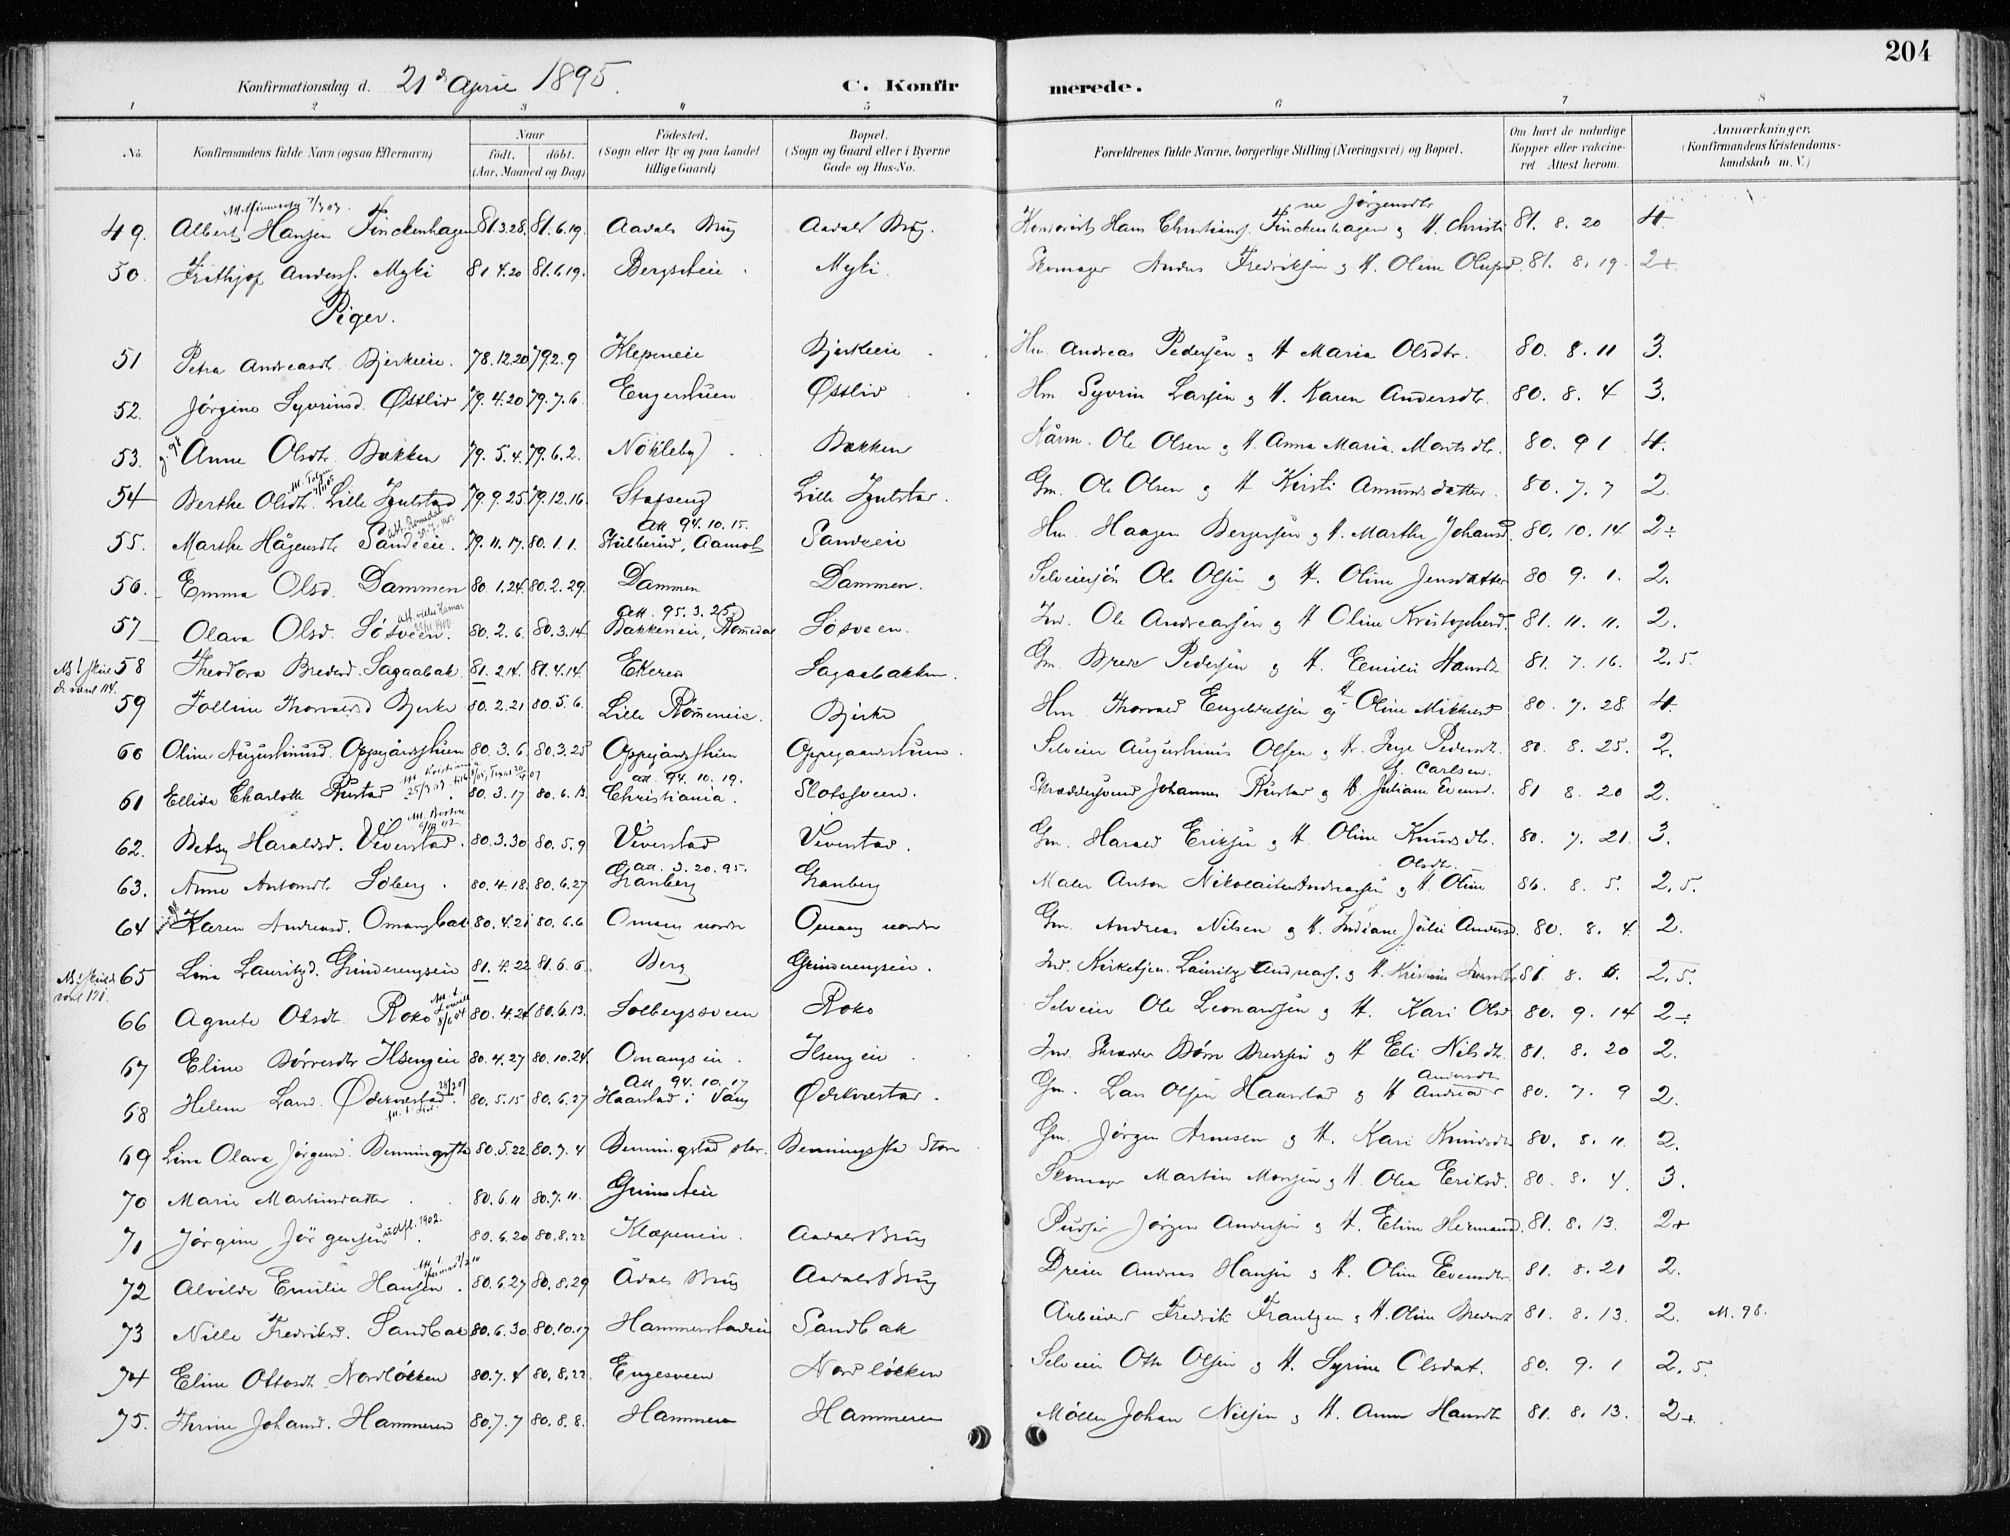 204
Konfirmationsdag d. 21d April 1895. C. Konfirmerede.
1 2 3 4 5 6 7 8
No. Konfirmandens fulde Navn (ogsaa Efternavn) Naar födt. döbt. (Aar, Maaned og Dag) Födested. (Sogn eller By og paa Landet tillige Gaard) Bopæl. (Sogn og Gaard eller i Byerne Gade og Hus-No. Forældrenes fulde Navne, borgerlige Stilling (Næringsvei) og Bopæl. Om havt de naturlige Kopper eller vaccineret. Attest herom. Anmærkninger, (Konfirmandens Kristendomskundskab m. V.)
49. Albert Hansen Finckenhagen 81.3.28. 81.6.19. Aadals Brug Aadals Brug. Hans Christians. Finckenhagen g H. Christine Jørgensdtr 81. 8. 20 4.
50. Frithjof Anders. Myki 81.4.20 81.6.19. Bergseteie. Myki. Skomager Anders Fredriksen g H. Oline Olufsd. 81. 8. 19. 2+
Piger.
51 Petra Andreasdt. Bjerkeeie. 78.12.20 79.2.9 Klepeneie Bjerkeeie Hm. Andreas Pedersen g H Maria Olsdtr. 80. 8. 11 3.
52. Jørgine Syvrinsd. Østlid 79.4.20 79.7.6. Engershuen Østlid Hm. Syvrin Larsen g H. Karen Andersdt. 80. 8. 4 3.
53. Anne Olsdtr. Bakken 79.5.4. 79.6.2. Nökleby Bakken Ole Olsen g H. Anna Maria Moritsdtr. 80. 9 1 4.
54 Berthe Olsdtr. Lille Ijulstad 79.9.25 79.12.16. Stafseng Lille Ijulstad. Gm. Ole Olsen g H Kirsti Amundsdatter. 80. 7. 7 2.
55. Marthe Hågensdt. Sandeeie. 79.11.17. 80.1.1. Att 94.10.15. Aamot Sandeeie Hm. Haagen Bergersen g H. Marthe Johansd. 80. 10. 14 2÷
56. Emma Olsd. Dammen 80.1.24. 80.2.29. Dammen Dammen. Selveier Ole Olsen g H. Oline Jensdatter 80 9. 1. 2.
57 Olava Olsd. Sösveen. 80.2.6. 80.3.14 Att. 95.3.25. Bakkeneie, Romedal Sösveen. Ind. Ole Andreassen g H Oline Kristophersd. 81. 11. 11. 2.
58 Theodora Bredesd. Sagaabak 81.2.14. 81.4.14. Ekeren Sagaabakken. Gm. Brede Pedersen g H. Emilie Hansdt. 81. 7. 16. 2,5.
59 Folline Thorvalsd Bjerke 80.2.21 80.5.6. Lille Römeneie. Bjerke Hm. Thorvald Engebretsen og H Oline Mikkelsd 80. 7. 28 4.
60 Oline Augustinusd. Oppegårdshuen 80.3.6. 80.3.25 Oppegårdshuen Oppegaardshuen. Selveier Augustinus Olsen g H. Inge Pedersdt. 80. 8. 25. 2.
61 Ellida Charlotte Rustad 80.3.17 80.6.13. att. 94.10.19. Christiania. Slotssveen. Skræddersvend Johannes Rustad g H. Juliane Evensd. f. Carlsen. 81 8. 20 2.
62. Betsy Haraldsd. Veverstad. 80.3.30 80.5.9 Veverstad Veverstad. Gm. Harald Eriksen g H Oline Knudsdt. 80. 7. 21. 3.
63. Anne Antonsdt. Soberg. 80.4.18. 80.6.27 att. 3.20.95. Granberg Granberg Maler Anton Nikolaisen Andreassen g H. Oline Olsdtr. 86. 8. 5. 2,5.
64 Karen Andreasd. Omangbak 80.4.21 80.6.6 Omang nordre Omang nordre Gm. Andreas Nilsen g H. Indiane Julie Andersd. 80. 8. 4 2.
65 Lina Lauritzd. Grinderengseie 81.4.22 81.6.6. Berg Grinderengseie. Ind. Kirketjen. Lauritz Andreas. g H. 81. 8. 6. 2,5.
66 Agnete Olsdt. Roko 80.4.24 80.6.13. Solbergssveen Roko Selveier Ole Leonardsen g H. Kari Olsd 80. 9. 14 2÷
67 Eline Börresdtr Ilsengeie 80.4.27 80.10.24. Omangseie. Ilsengeie Ind. Skrædder Bredesen g H Eli Nilsdt. 81. 8. 20 2.
68 Helene Larsd. Ødekverstad. 80.5.15 80.6.27 Att 94.10.17 Haarstad i Vang Ødekverstad. Gm. Lars Olsen Haarstad g H Andrea Andersdt. 80. 7. 9 2.
69 Lina Olava Jørgensd. Benningsta 80.5.22 80.7.4 Benningstad stor. Benningsta Store Gm. Jörgen Arnesen g H. Kari Knudsdt 80. 8. 11. 2.
70 Marie Martinsdatter 80.6.11 80.7.11. Grimseteie Skomager Martin Monsen g H. Olea Eriksd. 80. 8. 4. 3.
71 Jørgine Jörgensen udfl. 1902. 80.6.20 80.8.22 Klæpeneie. Aadals Brug Pudser Jørgen Andersen g H. Eline Hermansd. 81. 8. 13. 2+
72 Alvilde Emilie Hansen. 80.6.27 80.8.29 Ådals Brug Aadals Brug Dreier Andreas Hansen g H. Oline Evensdtr. 81. 8. 21 2.
73 Nille Fredriksd. Sandbak 80.6.30 80.10.17 Hammerstadeie Sandbak Arbeider Fredrik Frantzen g H. Oline Bredesdt 81. 8. 13. 2. M. 98.
74 Eline Ottosdt. Nordlökken 80.7.4 80.8.22. Engesveen Nordlökken Selveier Otto Olsen g H. Syrine Olsdat. 80. 9. 1 2,5.
75. Thrine Johansd. Hammeren 80.7.7 80.8.8. Hammeren Hammeren Möller Johan Nilsen g H. Anne Hansdt 81. 8. 13. 2+